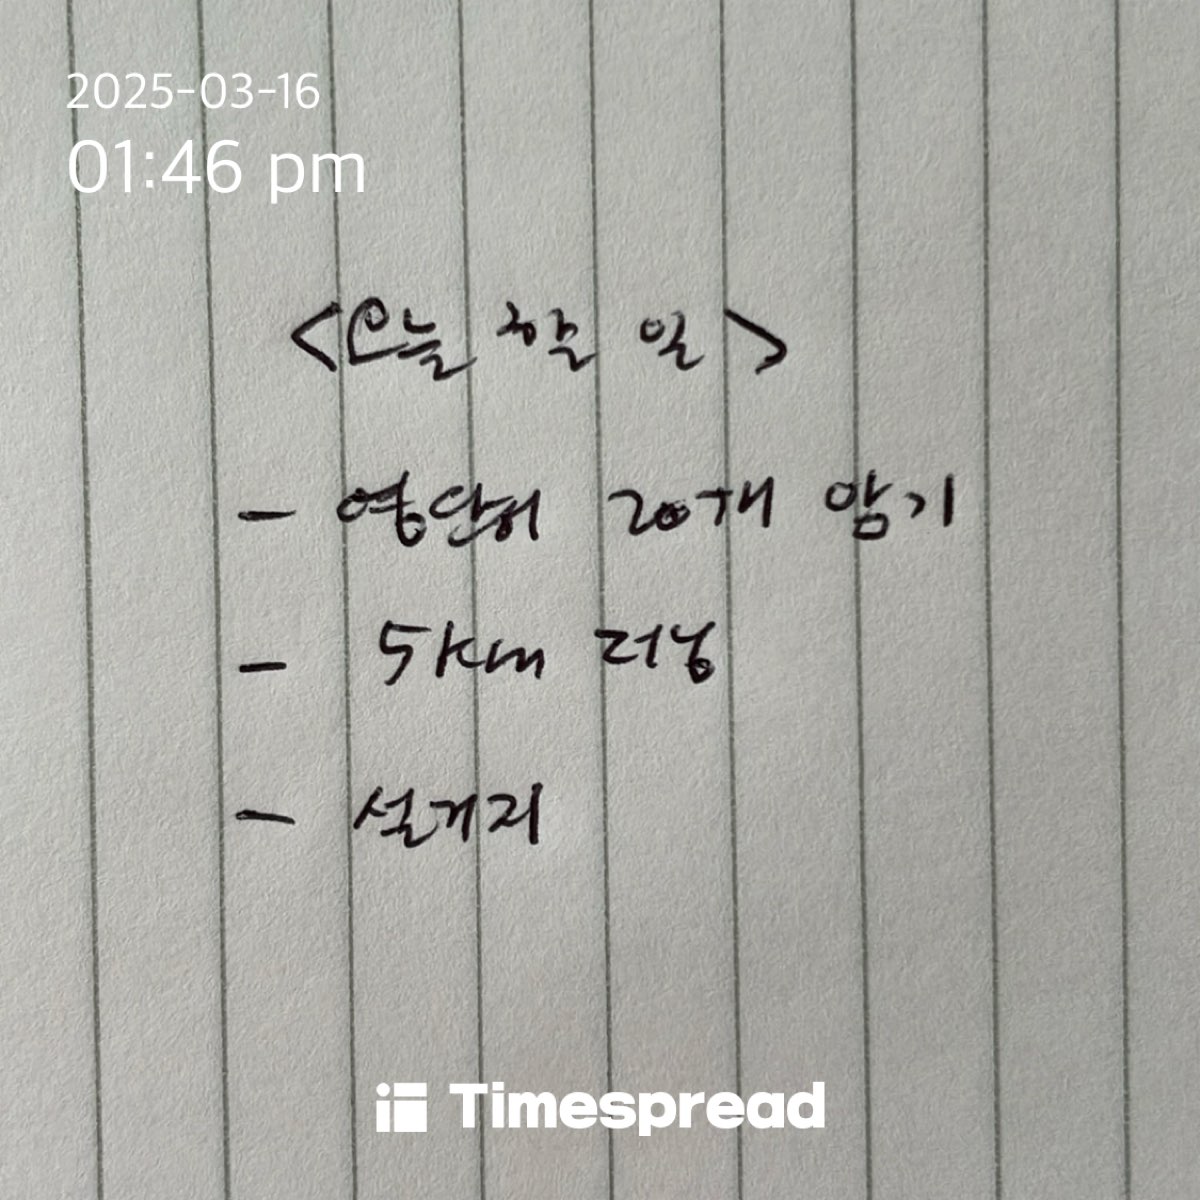 2025-03-16
01:46 pm
<오늘 할 일>
- 영단어 20개 암기
- 5km 러닝
- 설거지
Timespread